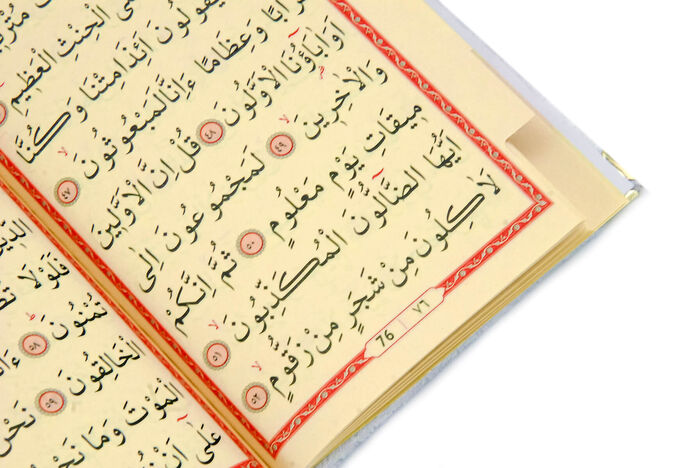 الْحِنْثِ الْعَظِيمِ
يَقُولُونَ اَئِذَا مِتْنَا وَكُنَّا
وَعِظَامًا ءَاِنَّا لَمَبْعُوثُونَ ٤٧
اَوَاٰبَاؤُنَا الْاَوَّلُونَ ٤٨ قُلْ اِنَّ الْاَوَّلِينَ
وَالْاٰخِرِينَ ٤٩ لَمَجْمُوعُونَ اِلٰى
مِيقَاتِ يَوْمٍ مَعْلُومٍ ٥٠ ثُمَّ اِنَّكُمْ
اَيُّهَا الضَّالُّونَ الْمُكَذِّبُونَ ٥١
لَاٰكِلُونَ مِنْ شَجَرٍ مِنْ زَقُّومٍ ٥٢
76 | ٧٦
فَلَوْلَا
تُمْنُونَ ٥٨
الْخَالِقُونَ ٥٩ نَحْنُ
الْمَوْتَ وَمَا نَحْنُ
عَلٰى اَنْ